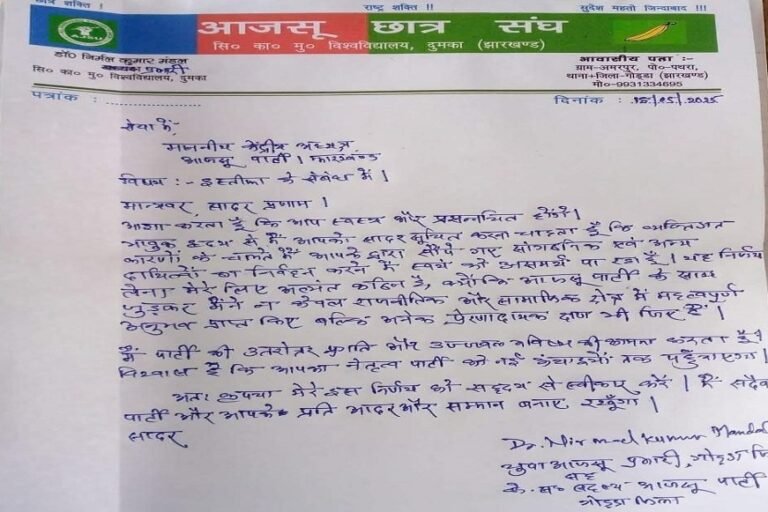 छात्र शक्ति ! राष्ट्र शक्ति !! सुदेश महतो जिन्दाबाद !!!
AJSU
आजसू छात्र संघ
सि० का० मु० विश्वविद्यालय, दुमका (झारखण्ड)
डॉ० निर्मल कुमार मंडल
प्रभारी
सि० का० मु० विश्वविद्यालय, दुमका
आवासीय पता :-
ग्राम-अमरपुर, पो०-पथरा,
थाना+जिला-गोड्डा (झारखण्ड)
मो०-9931334695
पत्रांक : दिनांक : 15/05/2025
सेवा में,
माननीय केंद्रीय अध्यक्ष,
आजसू पार्टी। झारखण्ड
विषय :- इस्तीफा के संबंध में।
मान्यवर, सादर प्रणाम।
आशा करता हूँ कि आप स्वस्थ और प्रसन्नचित होंगे।
भावुक हृदय से मैं आपको सादर सूचित करना चाहता हूँ कि व्यक्तिगत
कारणों के चलते मैं आपके द्वारा सौंपे गए सांगठनिक एवं अन्य
दायित्वों का निर्वहन करने में स्वयं को असमर्थ पा रहा हूँ। यह निर्णय
लेना मेरे लिए अत्यंत कठिन है, क्योंकि आजसू पार्टी के साथ
जुड़कर मैंने न केवल राजनीतिक और सामाजिक क्षेत्र में महत्वपूर्ण
अनुभव प्राप्त किए बल्कि अनेक प्रेरणादायक क्षण भी जिए हैं।
मैं पार्टी की उतरोतर प्रगति और उज्जवल भविष्य की कामना करता हूँ।
विश्वास है कि आपका नेतृत्व पार्टी को नई ऊंचाइयों तक पहुँचाएगा।
अतः कृपया मेरे इस निर्णय को सहृदय से स्वीकार करें। मैं सदैव
पार्टी और आपके प्रति आदर और सम्मान बनाए रखूँगा।
सादर
Dr. Nirmal Kumar Mandal
युवा आजसू प्रभारी, गोड्डा जि
सह
के० स० सदस्य आजसू पार्टी
गोड्डा जिला